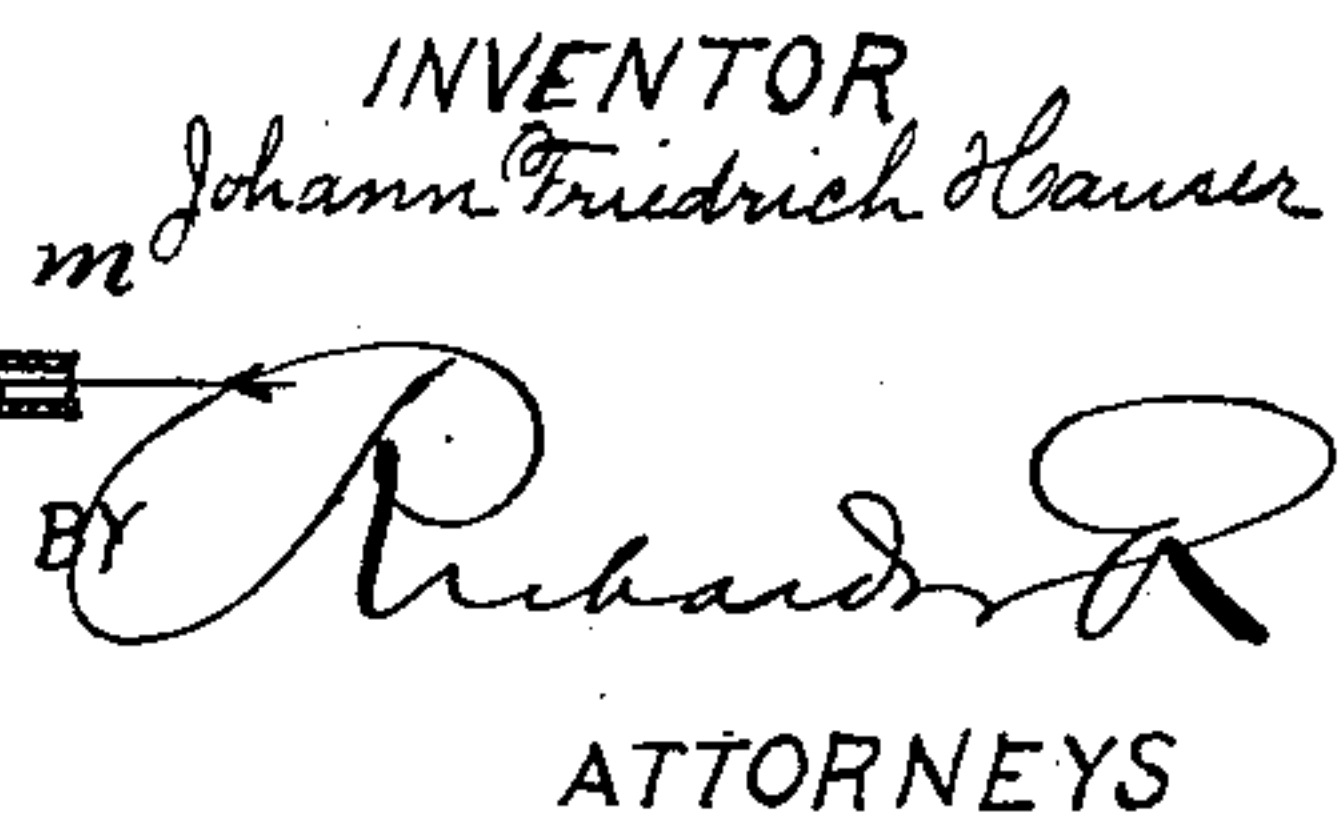 INVENTOR
Johann Friedrich Hauser
m
BY Richards
ATTORNEYS